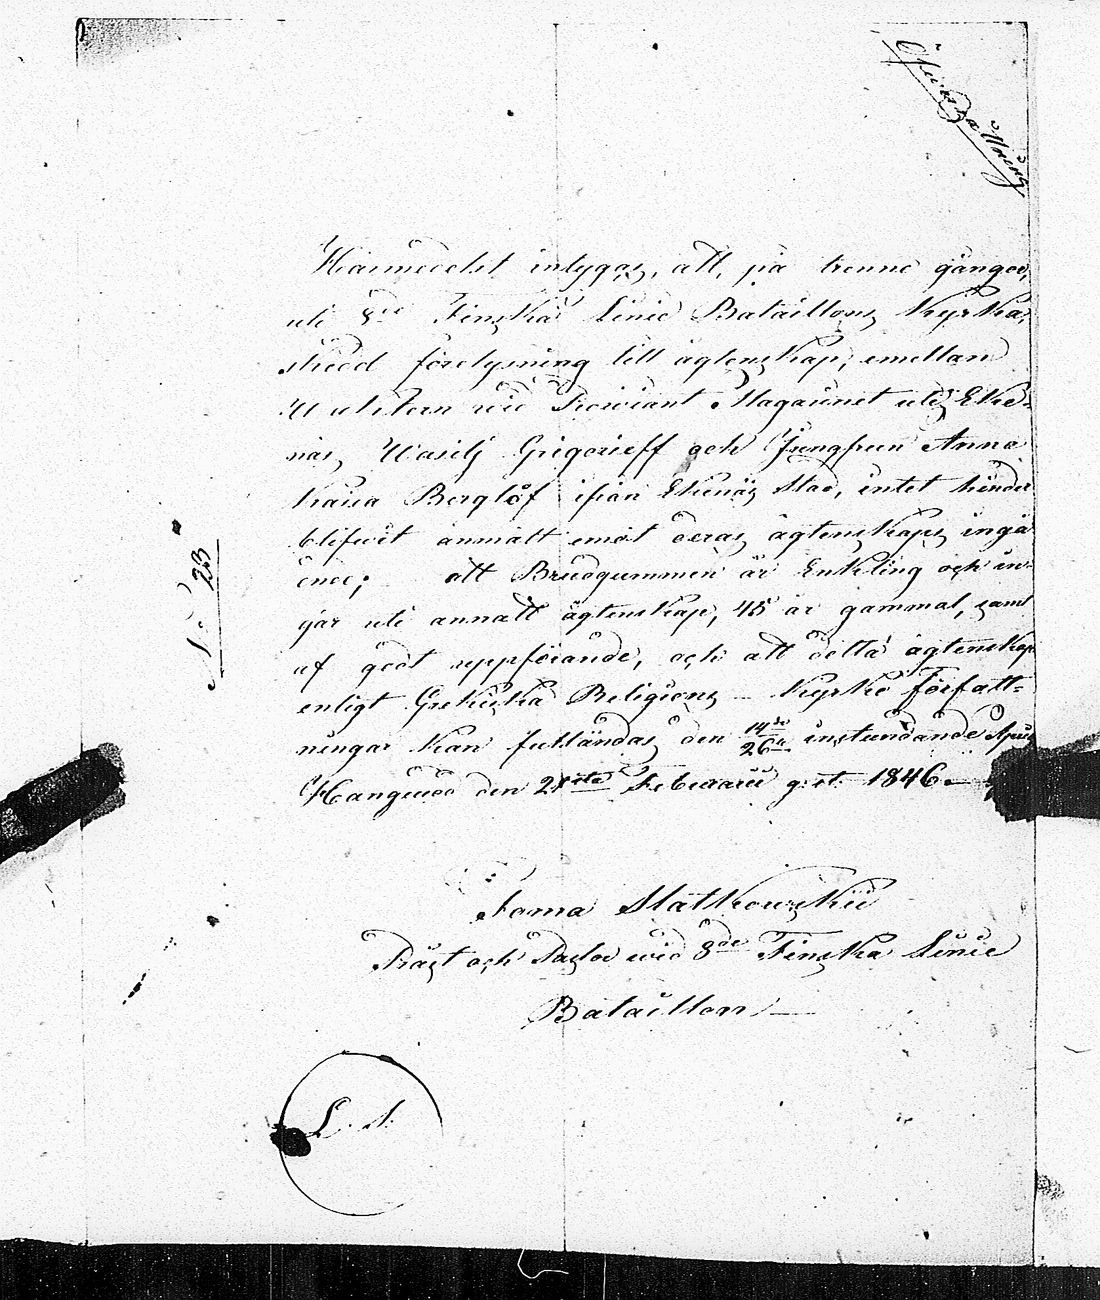 Öfversättning
Härmedelst intygas, att, på trenne gånger,
uti 8de Finska Linie Bataillons Kyrka,
skedd förelysning till ägtenskap, emellan
Wachtern wid Proviant Magasinet uti Eke-
näs, Wasilj Grigorieff och Jungfrun Anna
Kaisa Berglöf ifrån Ekenäs Stad, intet hinder
blifwit anmält emot deras ägtenskaps ingå
ende; att Brudgummen är Enkling och in-
går uti annatt ägtenskap, 45 år gammal, samt
af godt uppförande, och att detta ägtenskap
enligt Grekiska Religions Kyrko Författ=
ningar kan fulländas den 14de/26te instundande April
Hangeudd den 21sta Februarii g. st. 1846.—
Foma Slatkowskii
Präst och Pastor wid 8de Finska Linie
Bataillon
L. S.
N: 23